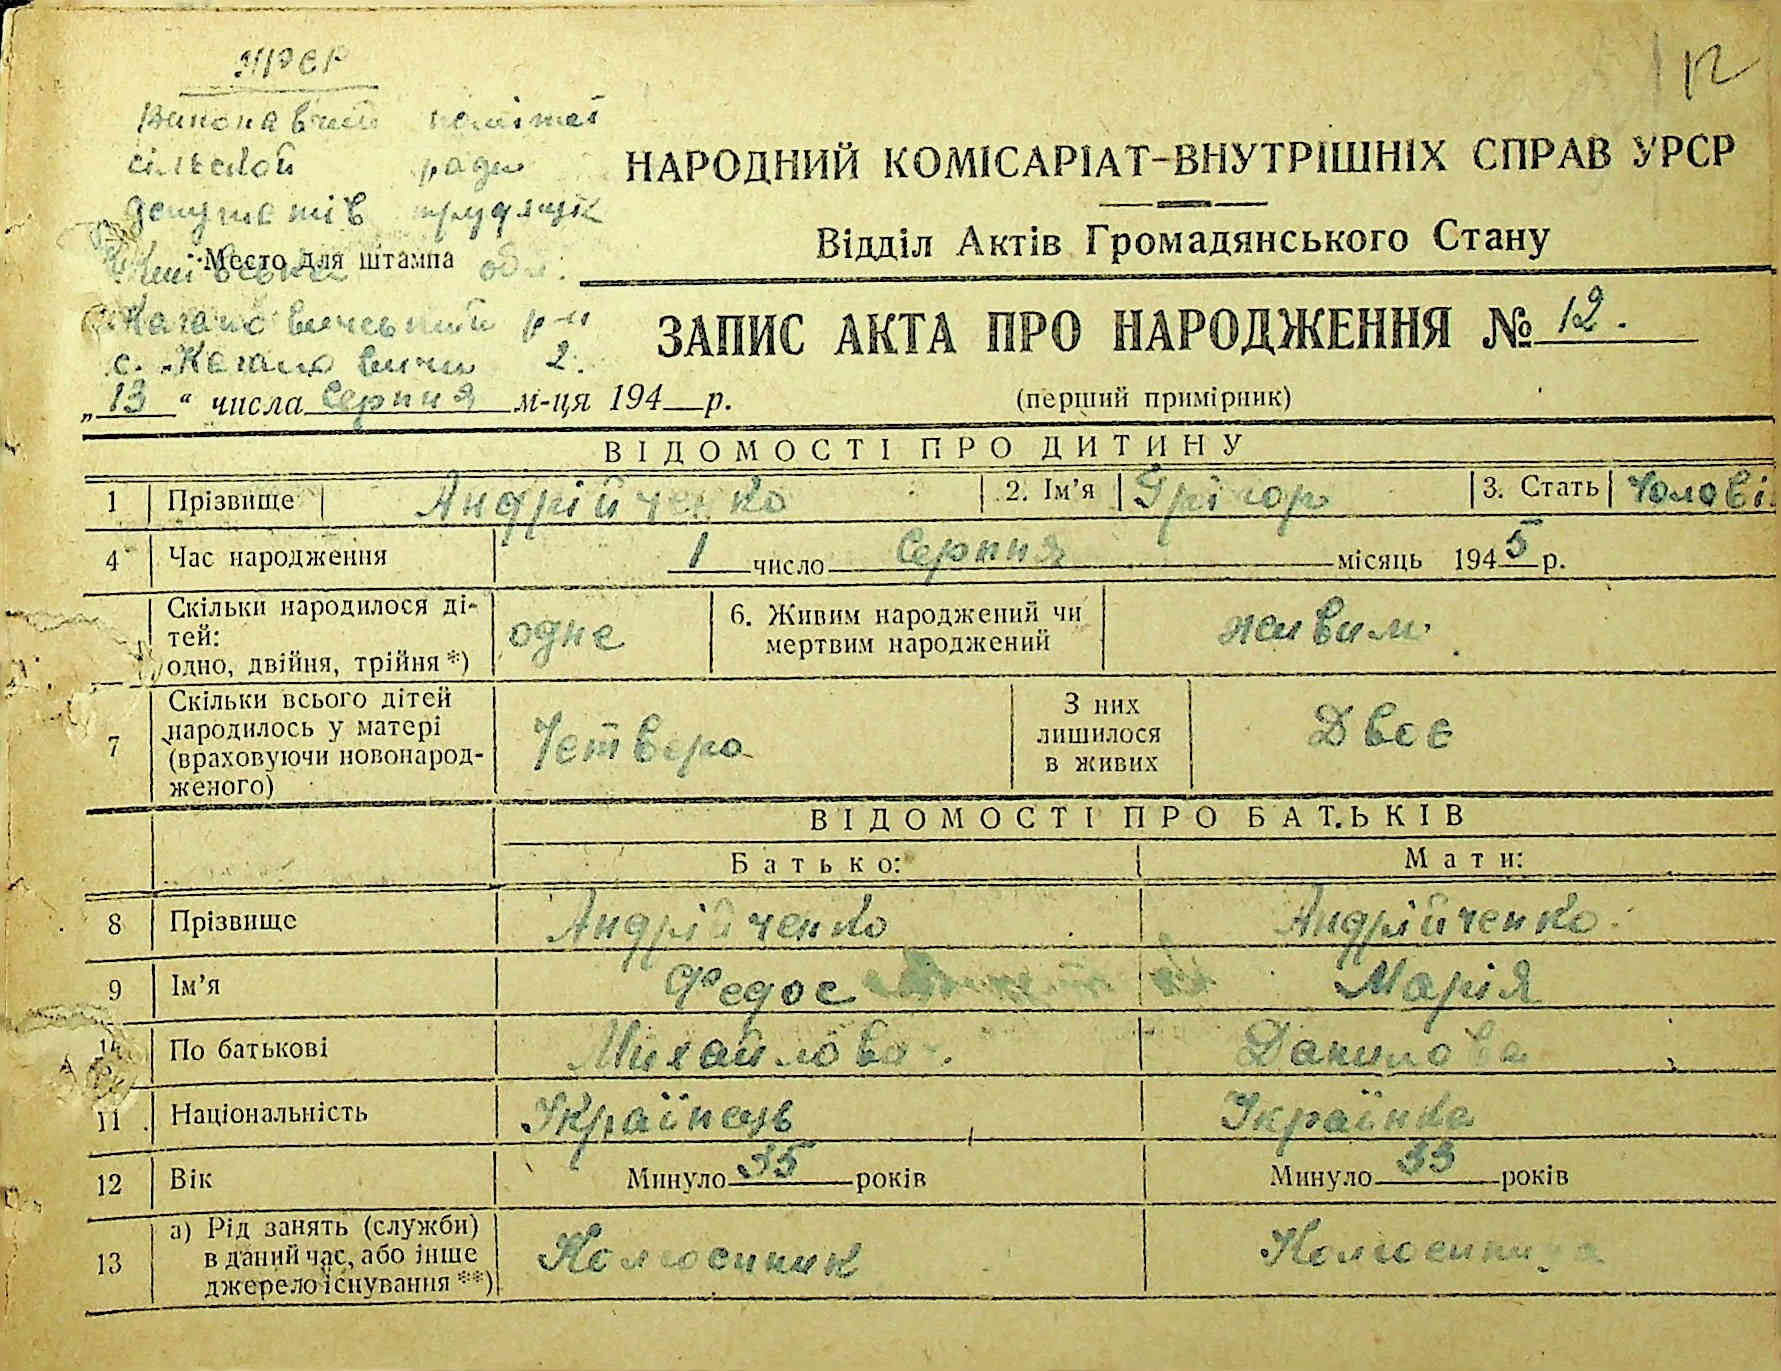 12
УРСР
Виконавчий комітет
сільської ради
депутатів трудящих
Место для штампа
Київська обл.
Кагановичський р-н
с. Кагановичи 2.
„13“ числа Серпня м-ця 194 р.
НАРОДНИЙ КОМІСАРІАТ-ВНУТРІШНІХ СПРАВ УРСР
Відділ Актів Громадянського Стану
ЗАПИС АКТА ПРО НАРОДЖЕННЯ № 12.
(перший примірник)
ВІДОМОСТІ ПРО ДИТИНУ
1 Прізвище Андрійченко 2. Ім’я Грігор 3. Стать Чолові
4 Час народження 1 число Серпня місяць 1945 р.
Скільки народилося ді-
тей:
одно, двійня, трійня *) одне 6. Живим народжений чи
мертвим народжений живим.
7 Скільки всього дітей
народилось у матері
(враховуючи новонарод-
женого) Четверо З них
лишилося
в живих Двоє
ВІДОМОСТІ ПРО БАТЬКІВ
Батько: Мати:
8 Прізвище Андрійченко Андрійченко
9 Ім’я Федос Марія
По батькові Михайлова Данилова
11 Національність Українець Українка
12 Вік Минуло 35 років Минуло 33 років
13 а) Рід занять (служби)
в даний час, або інше
джерело існування **) Колгоспник Колгоспниця